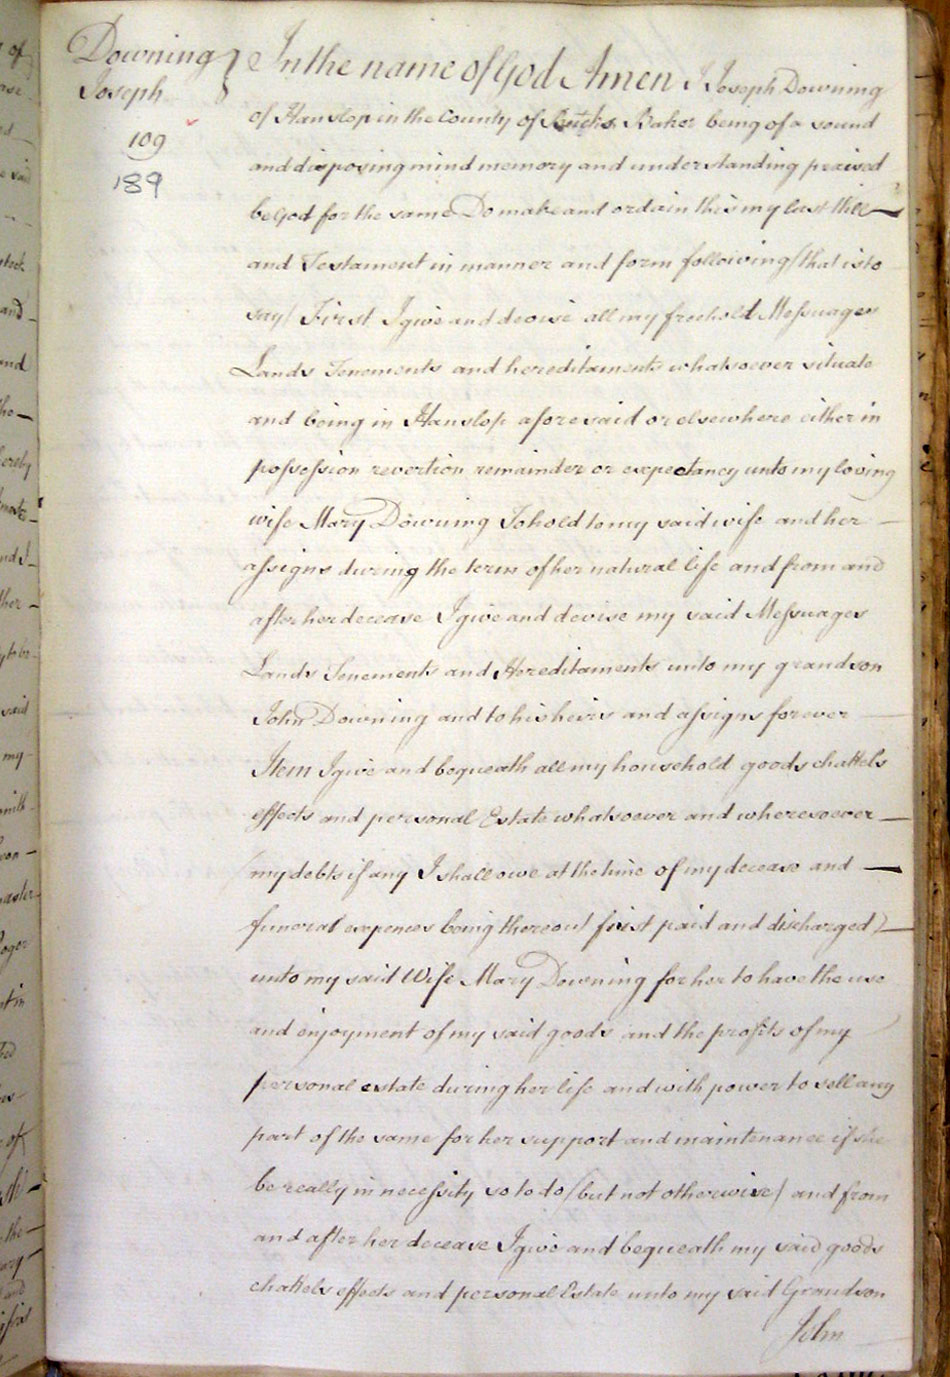 Downing
Joseph
109
189
In the name of God Amen I Joseph Downing
of Hanslop in the County of Bucks Baker being of a sound
and disposing mind memory and understanding praised
be God for the same Do make and ordain this my last Will
and Testament in manner and form following (that is to
say) First I give and devise all my freehold Messuages
Lands Tenements and hereditaments whatsoever situate
and being in Hanslop aforesaid or elsewhere either in
possession revertion remainder or expectancy unto my loving
wife Mary Downing To hold to my said wife and her
assigns during the term of her natural life and from and
after her decease I give and devise my said Messuages
Lands Tenements and Hereditaments unto my grandson
John Downing and to his heirs and assigns forever
Item I give and bequeath all my household goods chattels
effects and personal Estate whatsoever and wheresoever
(my debts if any I shall owe at the time of my decease and
funeral expences being thereout first paid and discharged)
unto my said Wife Mary Downing for her to have the use
and enjoyment of my said goods and the profits of my
personal estate during her life and with power to sell any
part of the same for her support and maintenance if she
be really in necessity so to do (but not otherwise) and from
and after her decease I give and bequeath my said goods
chattels effects and personal Estate unto my said Grandson
John